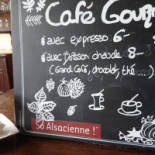 Café Gour
• avec expresso 6-
• avec Boisson chaude 8-
(Grand Café, chocolat, thé ....)
So Alsacienne !